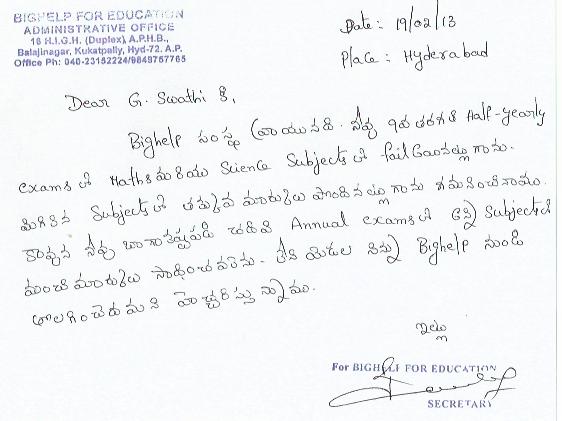 BIGHELP FOR EDUCATION
ADMINISTRATIVE OFFICE
16 H.I.G.H. (Duplex), A.P.H.B.,
Balajinagar, Kukatpally, Hyd-72. A.P.
Office Ph: 040-23152224/9849757765
Date : 19/02/13
Place : Hyderabad
Dear G. Swathi కి,
Bighelp సంస్థ వ్రాయునది. నీవు ఇక తరగతి Half-yearly
exams లో Maths మరియు Science Subjects లో fail
మిగిలిన Subjects లో తక్కువ మార్కులు గమనించినాము.
కావున నీవు బాగా కష్టపడి చదివి Annual exams లో అన్ని Subjects లో
మంచి మార్కులు సాధించవలెను. లేని యెడల నిన్ను Bighelp నుండి
తొలగించెదమని హెచ్చరిస్తున్నాము.
ఇట్లు
For BIGHELP FOR EDUCATION
SECRETARY